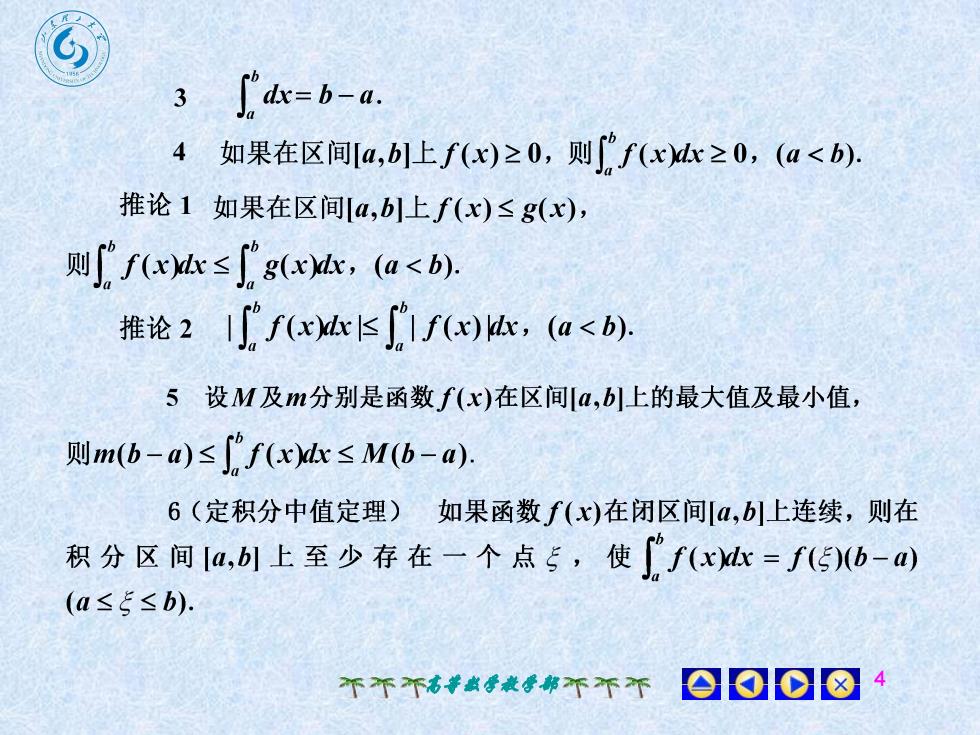 3 ∫_a^b dx = b − a.
4 如果在区间[a,b]上 f(x) ≥ 0，则∫_a^b f(x)dx ≥ 0，(a < b).
推论 1 如果在区间[a,b]上 f(x) ≤ g(x)，
则∫_a^b f(x)dx ≤ ∫_a^b g(x)dx，(a < b).
推论 2 |∫_a^b f(x)dx| ≤ ∫_a^b |f(x)|dx，(a < b).
5 设M及m分别是函数 f(x)在区间[a,b]上的最大值及最小值，
则m(b − a) ≤ ∫_a^b f(x)dx ≤ M(b − a).
6（定积分中值定理） 如果函数 f(x)在闭区间[a,b]上连续，则在
积分区间[a,b]上至少存在一个点ξ，使∫_a^b f(x)dx = f(ξ)(b − a)
(a ≤ ξ ≤ b).
高等数学教学部
4